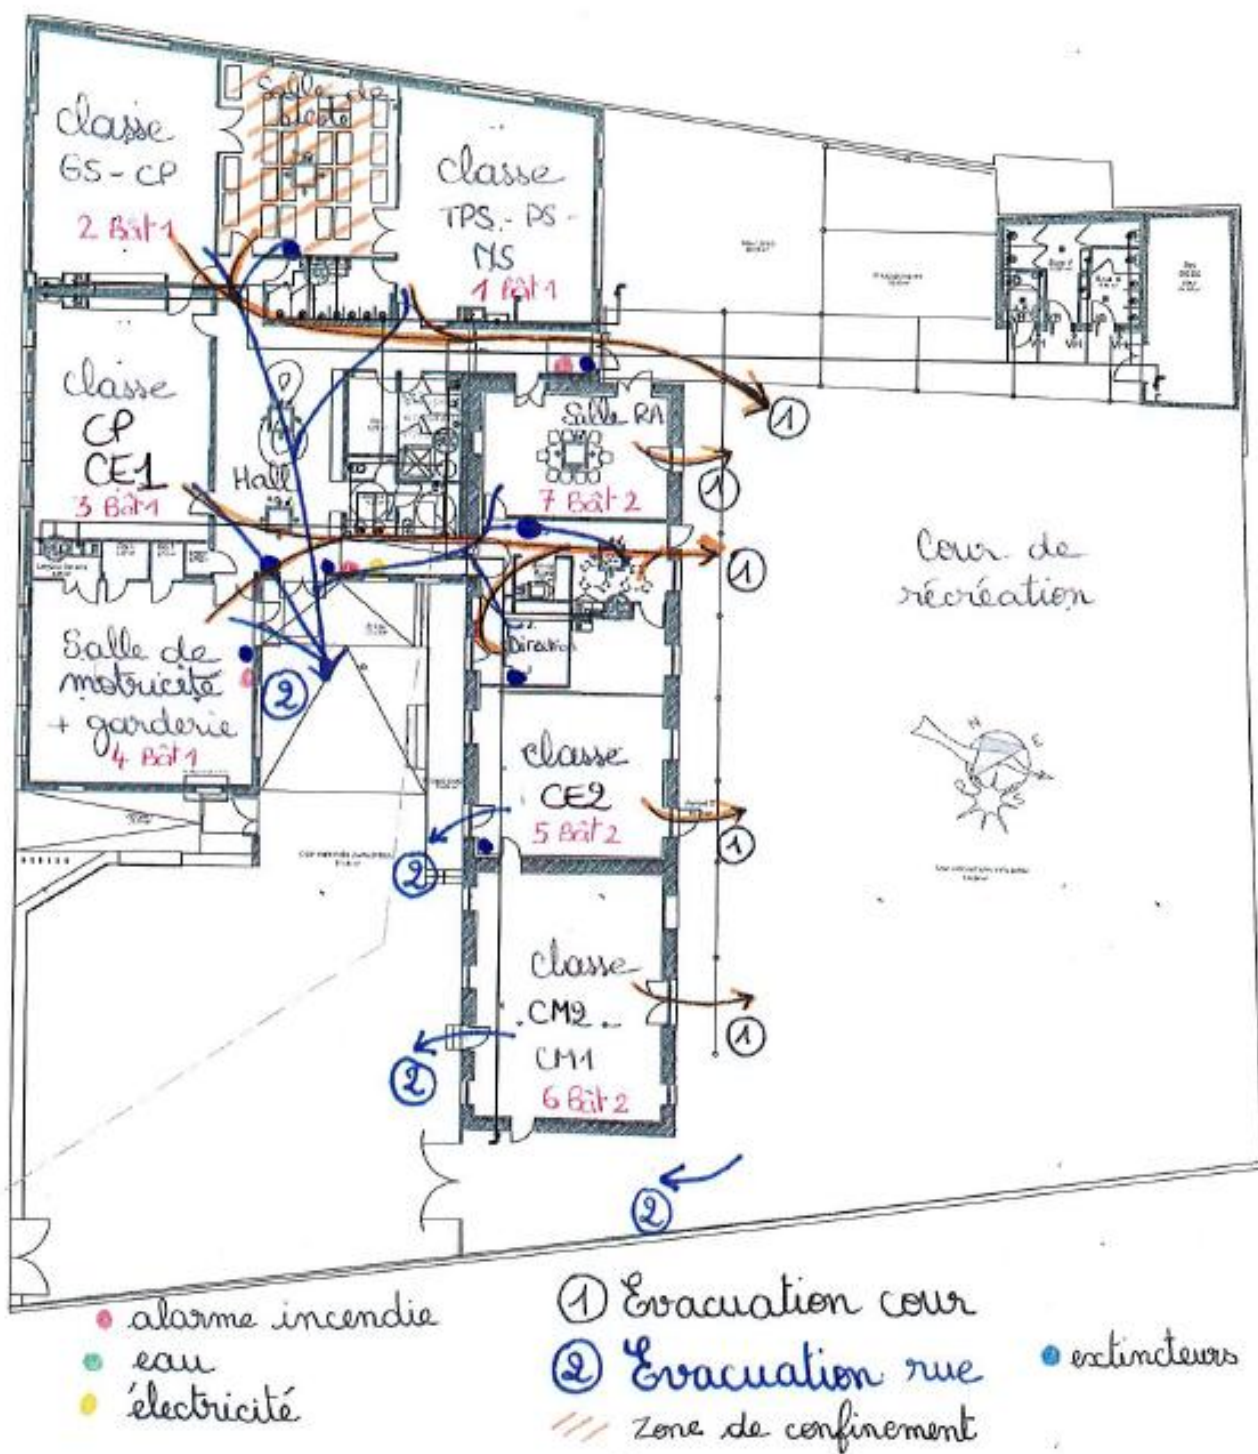 classe
GS - CP
2 Bât 1
Salle de
sieste
classe
TPS - PS -
MS
1 Bât 1
classe
CP
CE1
3 Bât 1
Hall
Salle RA
7 Bât 2
1
1
1
Cour de
récréation
N
E
S
Salle de
motricité
+ garderie
4 Bât 1
2
Direction
classe
CE2
5 Bât 2
1
2
classe
CM2
CM1
6 Bât 2
1
2
2
alarme incendie
eau
électricité
1 Evacuation cour
2 Evacuation rue
zone de confinement
extincteurs